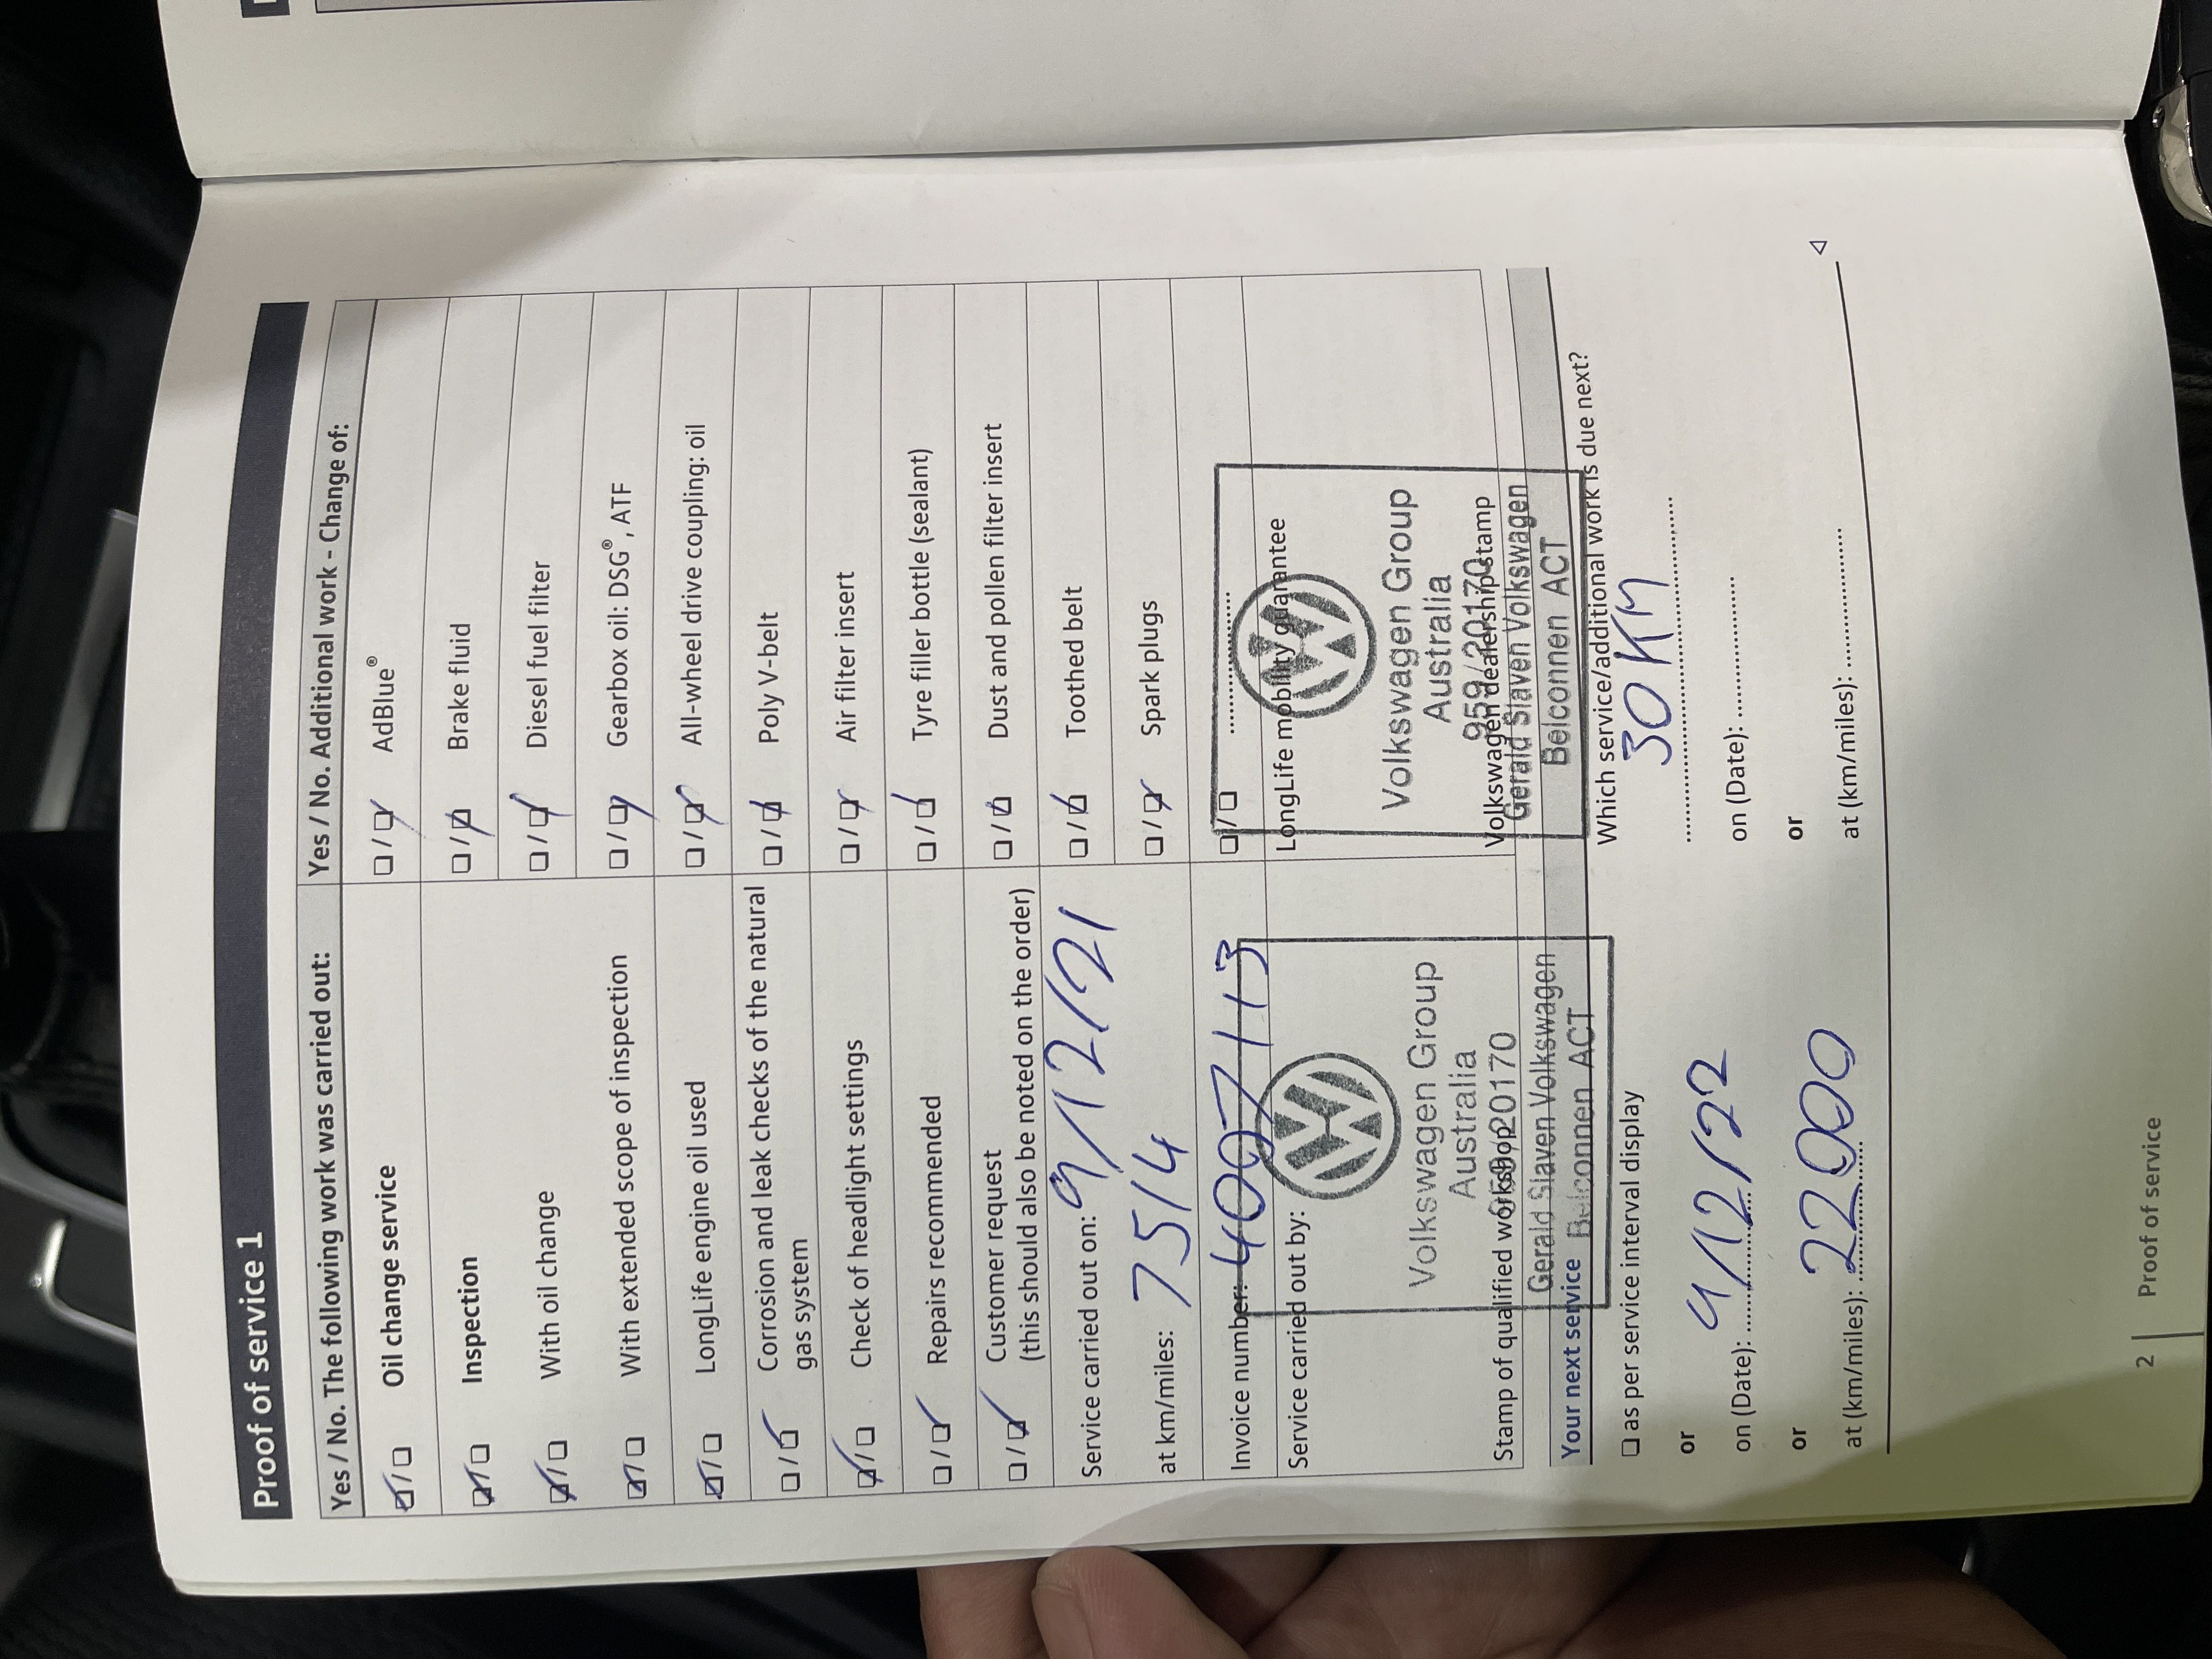 Proof of service 1
Yes / No. The following work was carried out:
☑/☐ Oil change service
☑/☐ Inspection
☑/☐ With oil change
☑/☐ With extended scope of inspection
☑/☐ LongLife engine oil used
☐/☑ Corrosion and leak checks of the natural
gas system
☑/☐ Check of headlight settings
☐/☑ Repairs recommended
☐/☑ Customer request
(this should also be noted on the order)
Service carried out on: 9/12/21
at km/miles: 7514
Invoice number: 4007113
Service carried out by:
Volkswagen Group
Australia
959/20170
Stamp of qualified workshop
Gerald Slaven Volkswagen
Belconnen ACT
Yes / No. Additional work - Change of:
☐/☑ AdBlue®
☐/☑ Brake fluid
☐/☑ Diesel fuel filter
☐/☑ Gearbox oil: DSG®, ATF
☐/☑ All-wheel drive coupling: oil
☐/☑ Poly V-belt
☐/☑ Air filter insert
☐/☑ Tyre filler bottle (sealant)
☐/☑ Dust and pollen filter insert
☐/☑ Toothed belt
☐/☑ Spark plugs
☐/☐ ....................
LongLife mobility guarantee
Volkswagen Group
Australia
959/20170
Volkswagen dealership stamp
Gerald Slaven Volkswagen
Belconnen ACT
Your next service
☐ as per service interval display
or
on (Date): 9/12/22
or
at (km/miles): 22000
Which service/additional work is due next?
30 KM
on (Date): ....................
or
at (km/miles): ....................
2 | Proof of service